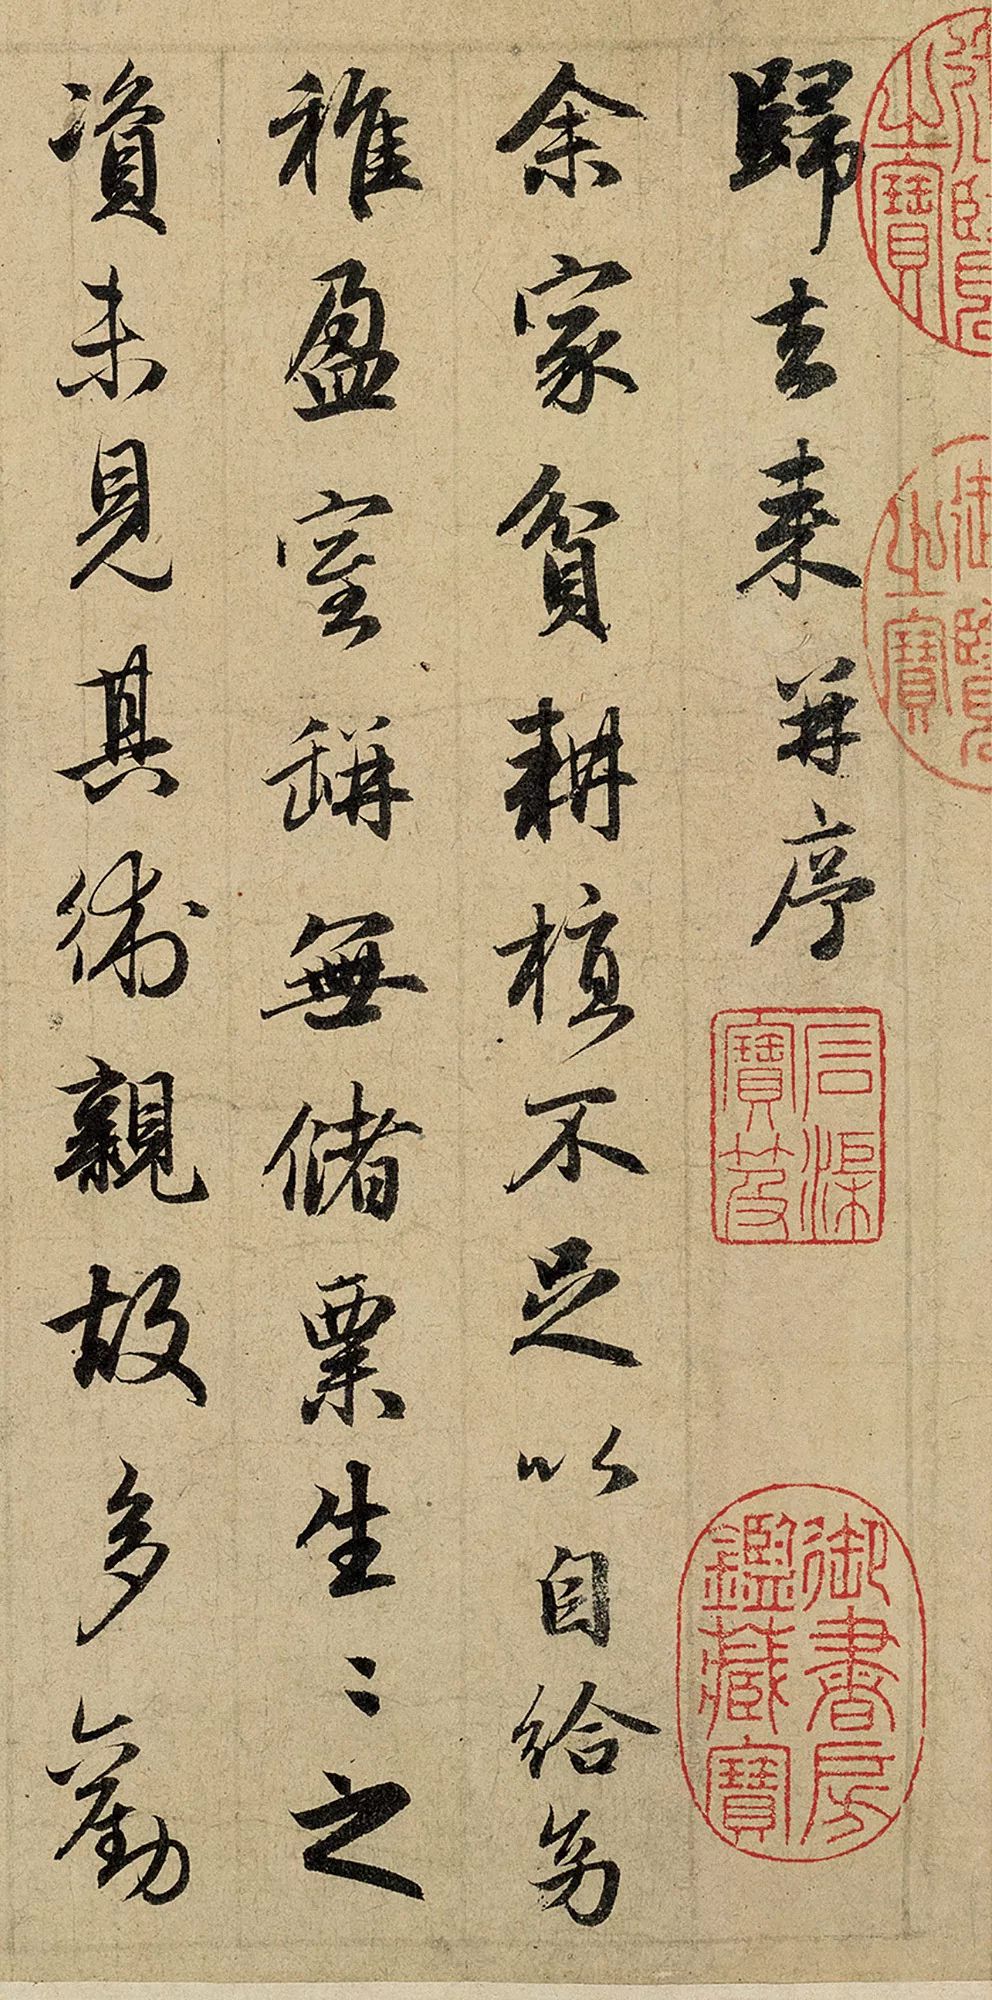 歸去来并序
余家貧耕植不足以自給幼
稚盈室缾無儲粟生〻之
資未見其術親故多勸
御覽之寶
石渠寶笈
御書房鑑藏寶